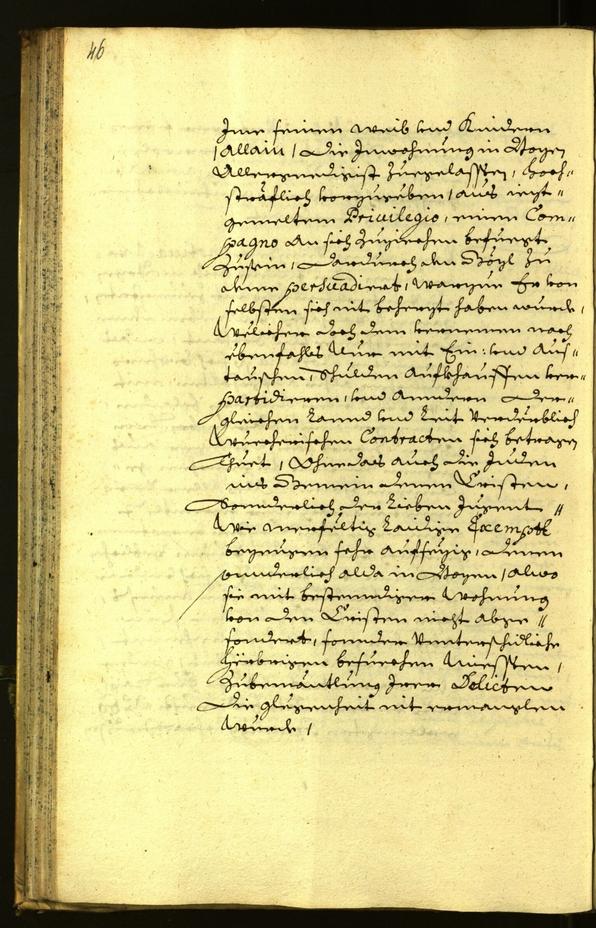 46
Ime seinen weib und Kindern
/allain/ die Inwohnung in Bozen
Allergnedigist zuegelassen, hoch=
sträflich vorzugeben, aus iezt=
gemeltem Privilegio, einen Com=
pagno an sich zuziehen befuegt
zusein, dardurch den Pögl zu
deme persuadiert, warzue Er von
selbsten sich nit behertzt haben wurde,
Welicher doch dem vernemen nach
ebenfahls Nur mit Ein: und Auß=
tauschen, Schulden Aufkhauffen ver=
partidieren, und anndern der=
gleichen Lannd und Leit verderblich
Wuecherischen Contracten sich betragen
thuet, Ohne das auch die Juden
ins Gemein denen Cristen,
Sonnderlich der Lieben Jugent
Wie verfeltig laidige Exempl
bezeugen sehr auffezig, denen
sonnderlich alda in Bozen, alwo
sie mit bestenndiger Wohnung
von den Cristen nicht abge=
sondert, sonnder Unnterschidliche
Herbrigen besuechen Miessen,
Zubemäntlung Irer Delicten
die glegenheit nit ermanglen
Wurde,